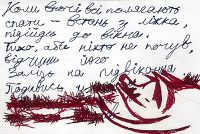 Коли вночі всі полягають
спати – встань з ліжка,
підійди до вікна.
Тихо, аби ніхто не почув,
відчини його
Залізь на підвіконня
Подивись